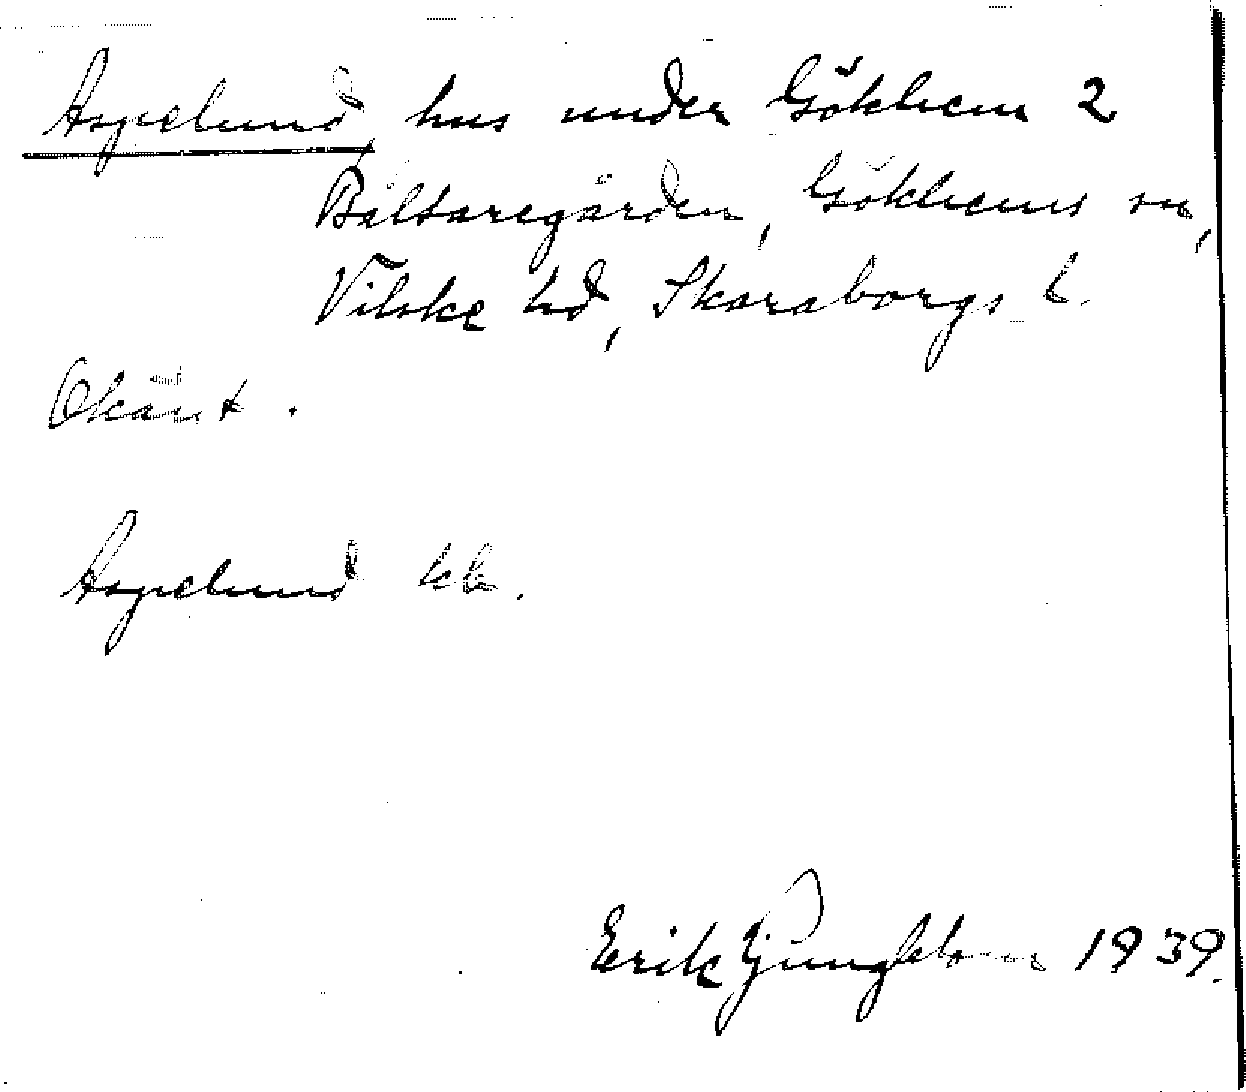 Aspelund, hus under Gökhem 2
Bältaregården, Gökhems sn,
Vilske hd, Skaraborgs l.
Okänt.
Aspelund kk.
Erik Ljungblom 1939.